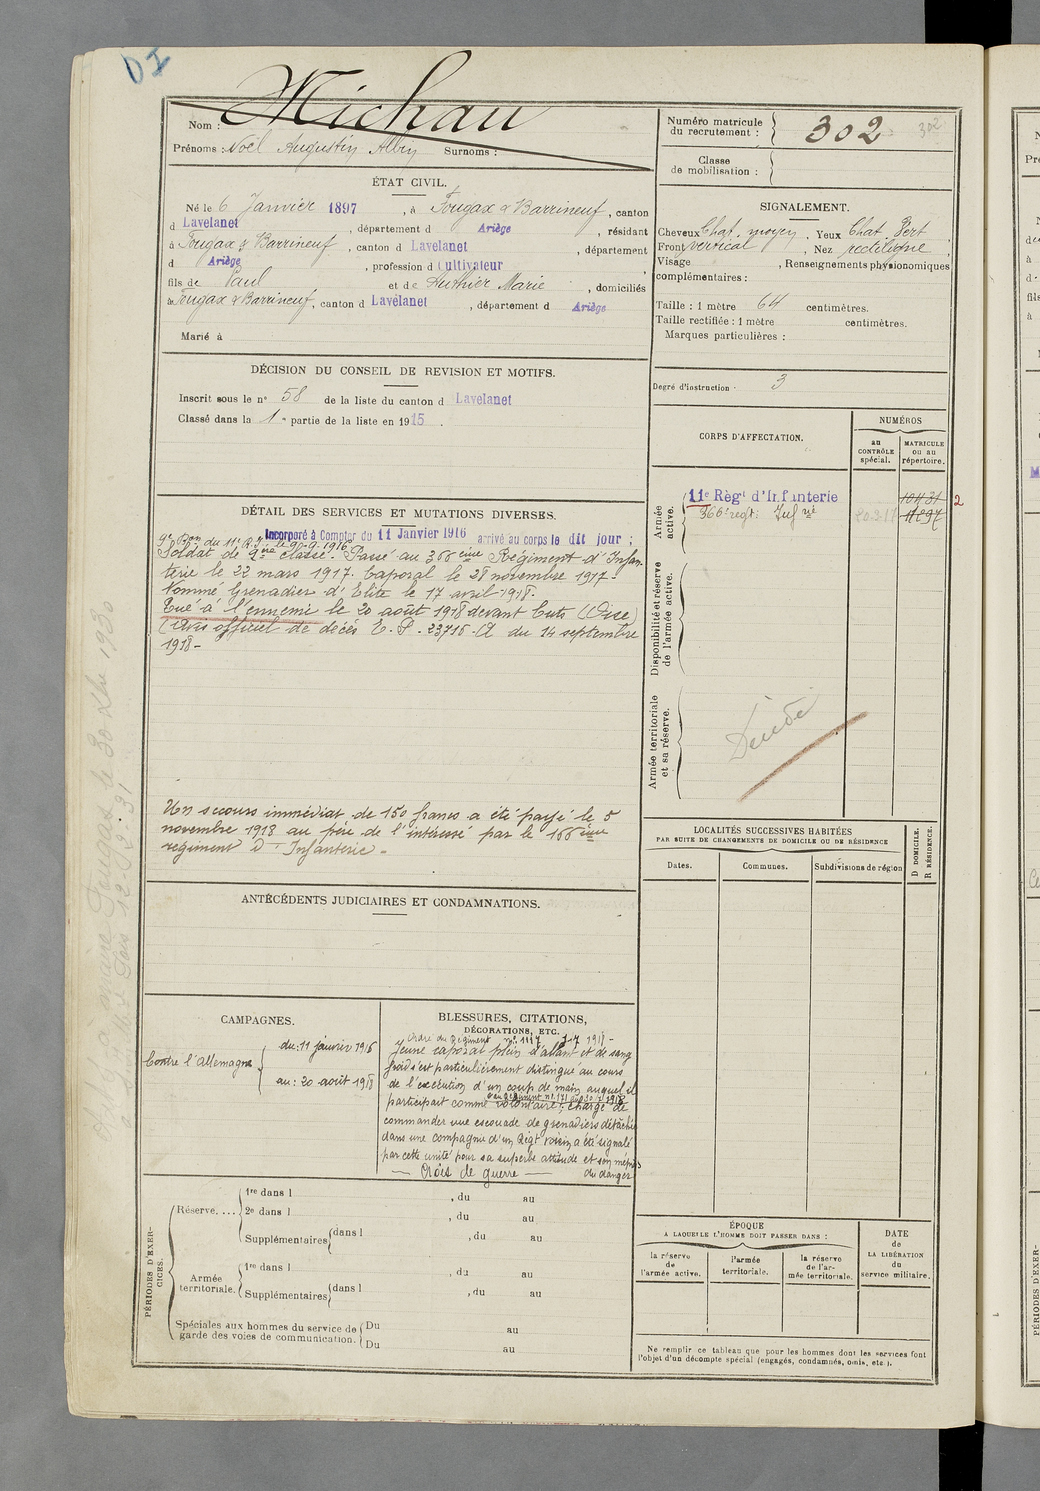 DI
Nom : Michau
Prénoms : Noël Augustin Albin Surnoms :
Numéro matricule
du recrutement : 302 302
Classe
de mobilisation :
ÉTAT CIVIL.
Né le 6 Janvier 1897, à Fougax & Barrineuf, canton
d Lavelanet, département d Ariège, résidant
à Fougax & Barrineuf, canton d Lavelanet, département
d Ariège, profession d Cultivateur
fils de Paul et de Authier Marie, domiciliés
à Fougax & Barrineuf, canton d Lavelanet, département d Ariège
Marié à
SIGNALEMENT.
Cheveux Chat. moyen, Yeux Chat. Vert
Front vertical, Nez rectiligne
Visage, Renseignements physionomiques
complémentaires :
Taille : 1 mètre 64 centimètres.
Taille rectifiée : 1 mètre centimètres.
Marques particulières :
Degré d'instruction 3
DÉCISION DU CONSEIL DE REVISION ET MOTIFS.
Inscrit sous le n° 58 de la liste du canton d Lavelanet
Classé dans la 1e partie de la liste en 1915.
CORPS D'AFFECTATION.
NUMÉROS
au
CONTRÔLE
spécial.
MATRICULE
ou au
répertoire.
Armée
active.
11e Régt d'Infanterie 10431 2
366e regt Infrie 11297
Disponibilité et réserve
de l'armée active.
Armée territoriale
et sa réserve.
Décédé
DÉTAIL DES SERVICES ET MUTATIONS DIVERSES.
Incorporé à Compter du 11 Janvier 1916 arrivé au corps le dit jour ;
9e Bon du 11e R.I. le 20-9-1916
Soldat de 2ème classe. Passé au 366ème Régiment d'Infan-
terie le 22 mars 1917. Caporal le 28 novembre 1917-
Nommé Grenadier d'Elite le 17 avril 1918.
Tué à l'ennemi le 20 août 1918 devant Cuts (Oise)
(Avis officiel de décès E. P. 23715-A du 14 septembre
1918-
Un secours immédiat de 150 francs a été payé le 5
novembre 1918 au père de l'intéressé par le 156ème
régiment d'Infanterie-
LOCALITÉS SUCCESSIVES HABITÉES
PAR SUITE DE CHANGEMENTS DE DOMICILE OU DE RÉSIDENCE
Dates.
Communes.
Subdivisions de région
D DOMICILE.
R RÉSIDENCE.
ANTÉCÉDENTS JUDICIAIRES ET CONDAMNATIONS.
CAMPAGNES.
Contre l'allemagne
du: 11 janvier 1916
au: 20 août 1918
BLESSURES, CITATIONS,
DÉCORATIONS, ETC.
Ordre du Régiment n° 1117 1-7 1918-
Jeune caporal plein d'allant et de sang
froid s'est particulièrement distingué au cours
de l'exécution d'un coup de main auquel il
participait comme volontaire ; chargé de
commander une escouade de grenadiers détachés
dans une compagnie d'un Régt voisin a été signalé
par cette unité pour sa superbe attitude et son mépris
du danger
— Croix de guerre —
PÉRIODES D'EXER-
CICES.
Réserve....
1re dans l , du au
2e dans l , du au
Supplémentaires dans l , du au
Armée
territoriale.
1re dans l , du au
Supplémentaires dans l , du au
Spéciales aux hommes du service de
garde des voies de communication.
Du au
Du au
ÉPOQUE
A LAQUELLE L'HOMME DOIT PASSER DANS :
la réserve
de
l'armée active.
l'armée
territoriale.
la réserve
de l'ar-
mée territoriale.
DATE
de
LA LIBÉRATION
du
service militaire.
Ne remplir ce tableau que pour les hommes dont les services font
l'objet d'un décompte spécial (engagés, condamnés, omis, etc.).